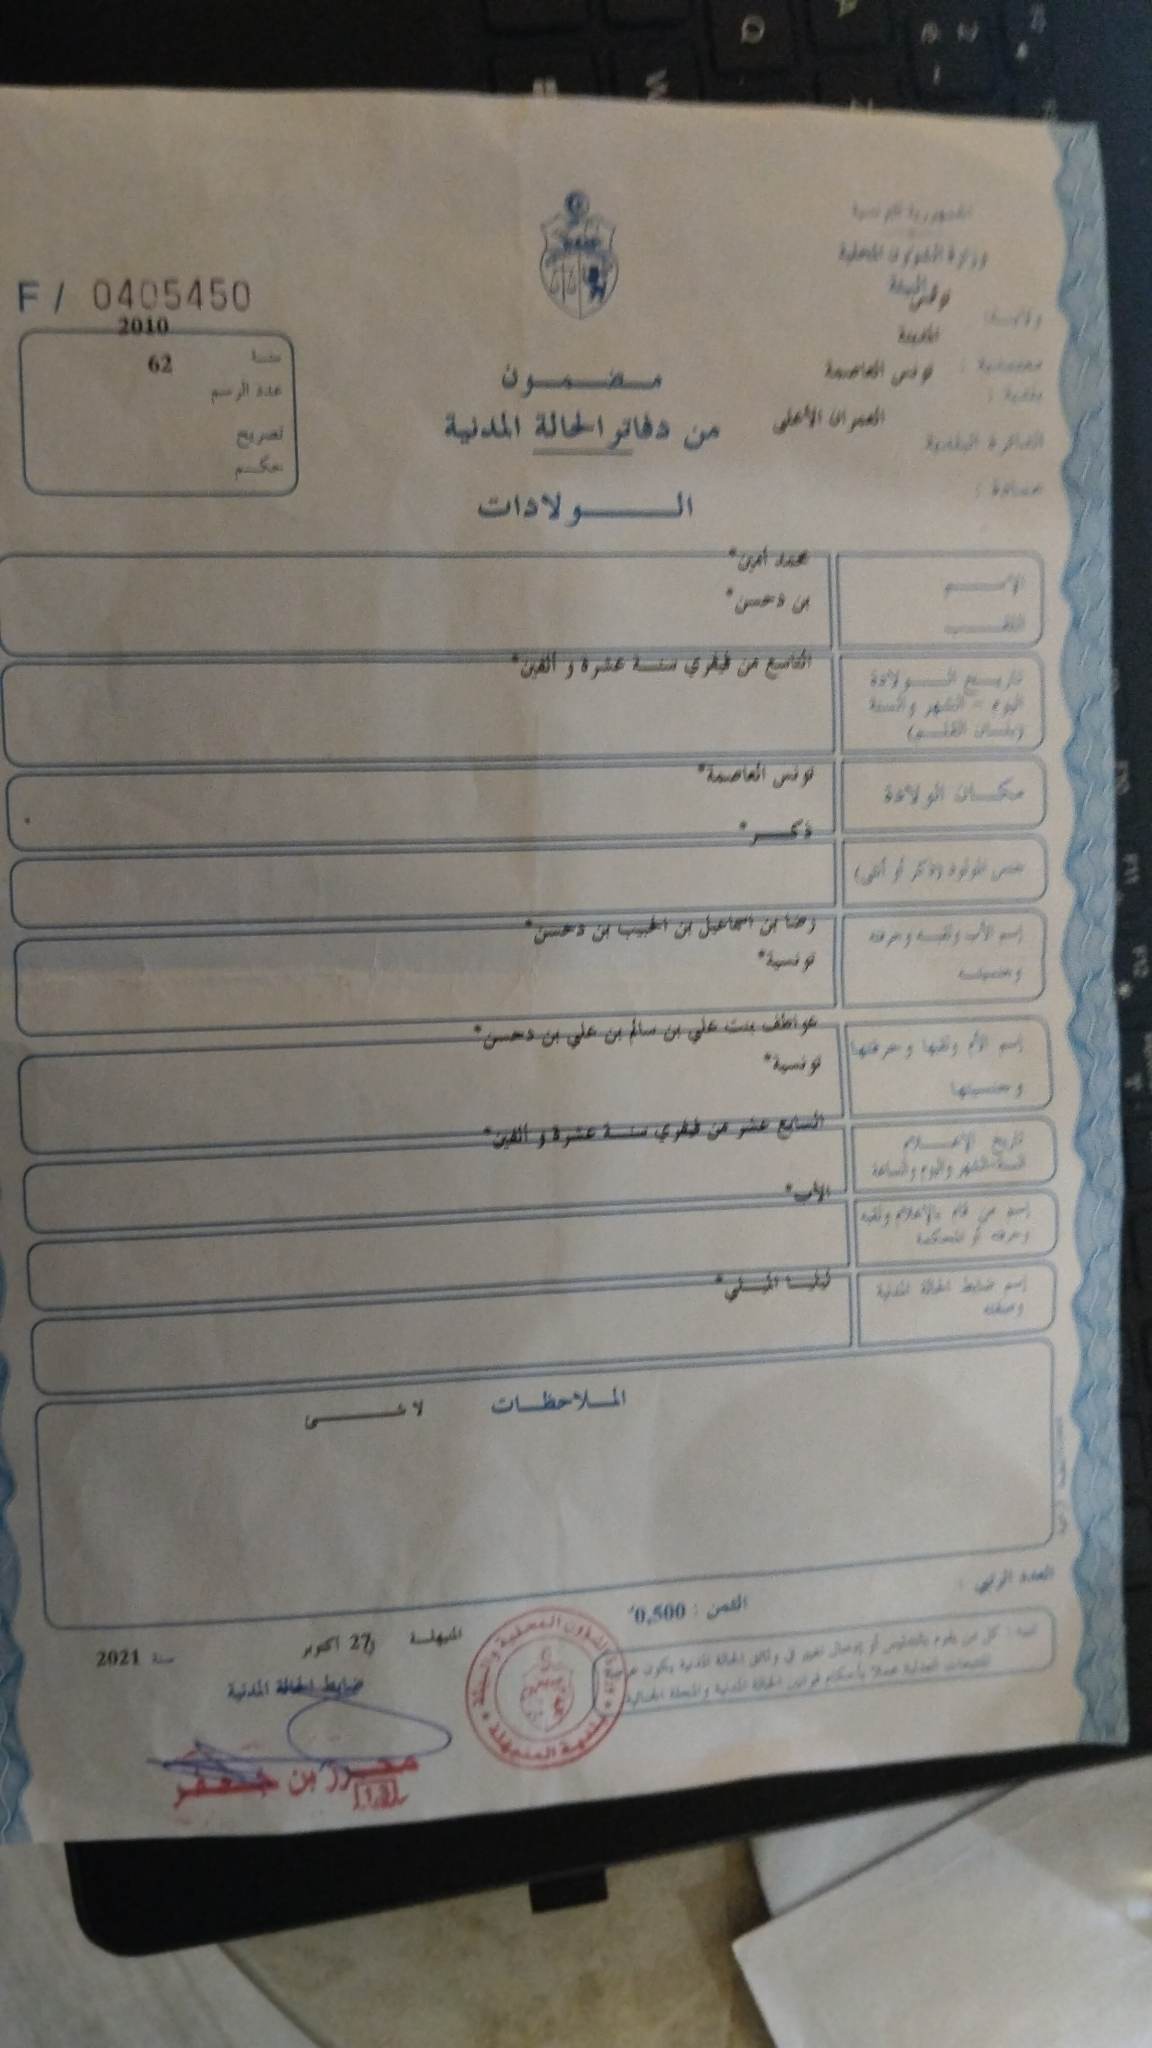 الجمهورية التونسية
وزارة الشؤون المحلية
والبيئة
ولاية: تونس
معتمدية : المدينة
بلدية : تونس العاصمة
الدائرة البلدية العمران الأعلى
عمادة :
F / 0405450
سنة 2010
عدد الرسم 62
تصريح
حكم
مضمون
من دفاتر الحالة المدنية
الولادات
الإسم محمد أمين*
اللقب بن دحسن*
تاريخ الولادة التاسع من فيفري سنة عشرة و ألفين*
اليوم - الشهر والسنة
(بلسان القلم)
مكان الولادة تونس العاصمة*
جنس المولود (ذكر أو أنثى) ذكر*
إسم الأب ولقبه وحرفته رضا بن اسماعيل بن الحبيب بن دحسن*
وجنسيته تونسية*
إسم الأم ولقبها وحرفتها عواطف بنت علي بن سالم بن علي بن دحسن*
وجنسيتها تونسية*
تاريخ الإعلام السابع عشر من فيفري سنة عشرة و ألفين*
السنة والشهر واليوم والساعة
إسم من قام بالإعلام ولقبه الأب*
وحرفته أو المحكمة
إسم ضابط الحالة المدنية
وصفته
الملاحظات لا شئ
العدد الرتبي :
الثمن : 0,500
تنبيه : كل من يقوم بالتدليس أو إدخال تغيير في وثائق الحالة المدنية يكون عرضة
للتتبعات العدلية عملا بأحكام قوانين الحالة المدنية والمجلة الجنائية
المنيهلة في 27 أكتوبر سنة 2021
ضابط الحالة المدنية
وزارة الشؤون المحلية والبيئة
بلدية المنيهلة
محرز بن جعفر